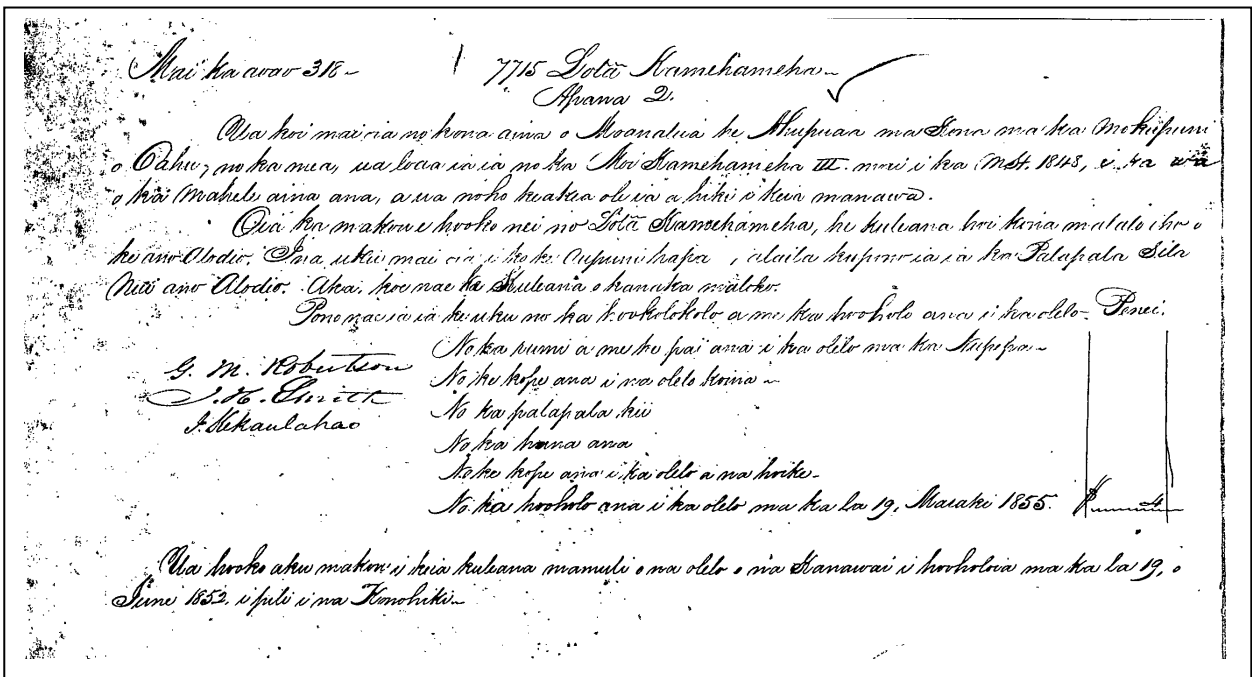 Mai ka aoao 318 - 7715 Lota Kamehameha -
Apana 2.
Ua koi mai oia no kona aina o Moanalua he Ahupuaa ma Kona ma ka Mokupuni
o Oahu, no ka mea, ua loaa ia ia no ka Moi Kamehameha III. mai i ka M.H. 1848, i ka wa
o ka Mahele aina ana, a ua noho keakea ole ia a hiki i keia manawa.
Oia ka makou e hooko nei no Lota Kamehameha, he kuleana hoi kona malalo iho o
ke ano Alodio. Ina uku mai oia i ko ke Aupuni hapa, alaila kupono ia ia ka Palapala Sila
Nui ano Alodio. Aka, koe nae ke Kuleana o kanaka maloko.
Pono nae ia ia ke uku no ka hookolokolo a me ka hooholo ana i ka olelo. Penei.
No ka rumi a me ke pai ana i ka olelo ma ka Nupepa -
G. M. Robertson
No ke kope ana i na olelo koina -
J. H. Smith
No ka palapala kii
J. Kekaulahao
No ka hana ana
No ke kope ana i ka olelo a na hoike -
No ka hooholo ana i ka olelo ma ka la 19, Maraki 1855. $ 4
Ua hooko aku makou i keia kuleana mamuli o na olelo o na Kanawai i hooholoia ma ka la 19, o
June 1852. i pili i na Konohiki -